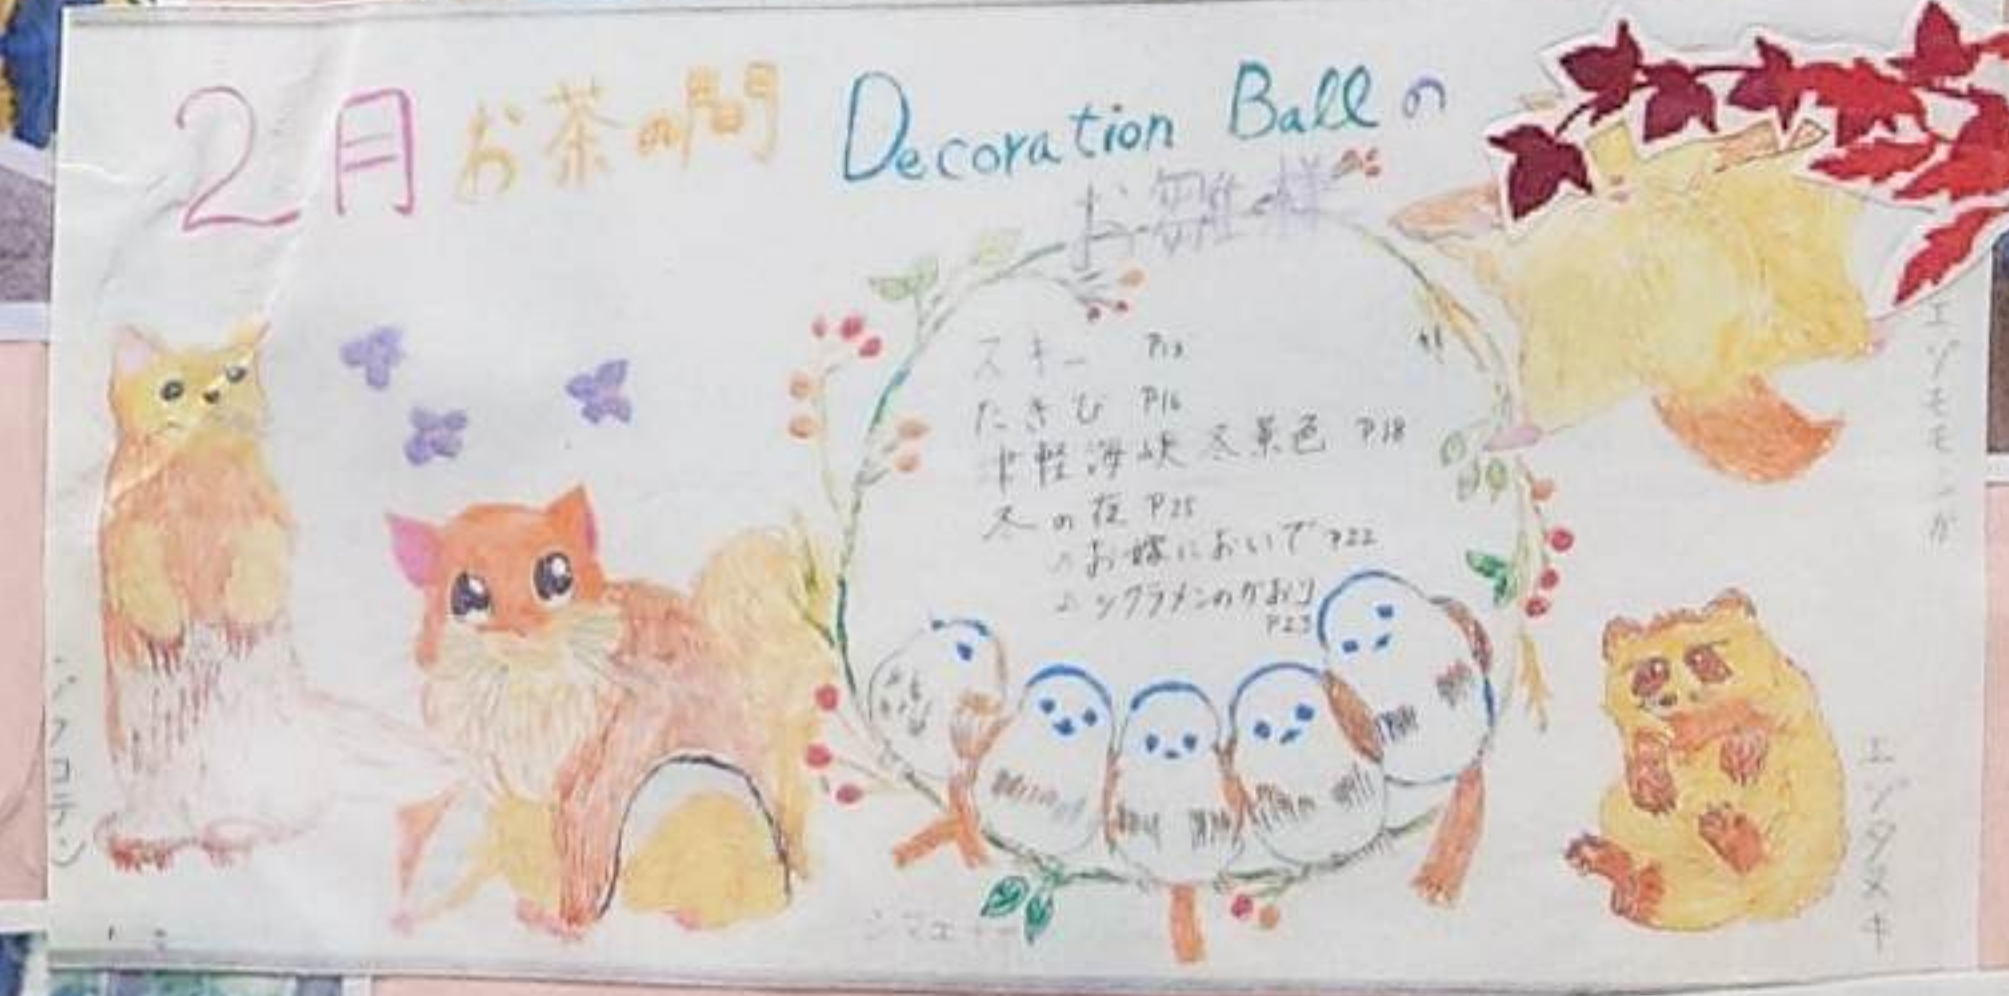 2月 お茶の間 Decoration Ballの
お雛様
スキー P13
たきび P16
津軽海峡冬景色 P18
冬の花 P25
お嫁においで P22
シクラメンのかおり
P23
エゾモモンガ
エゾタヌキ
シマエ